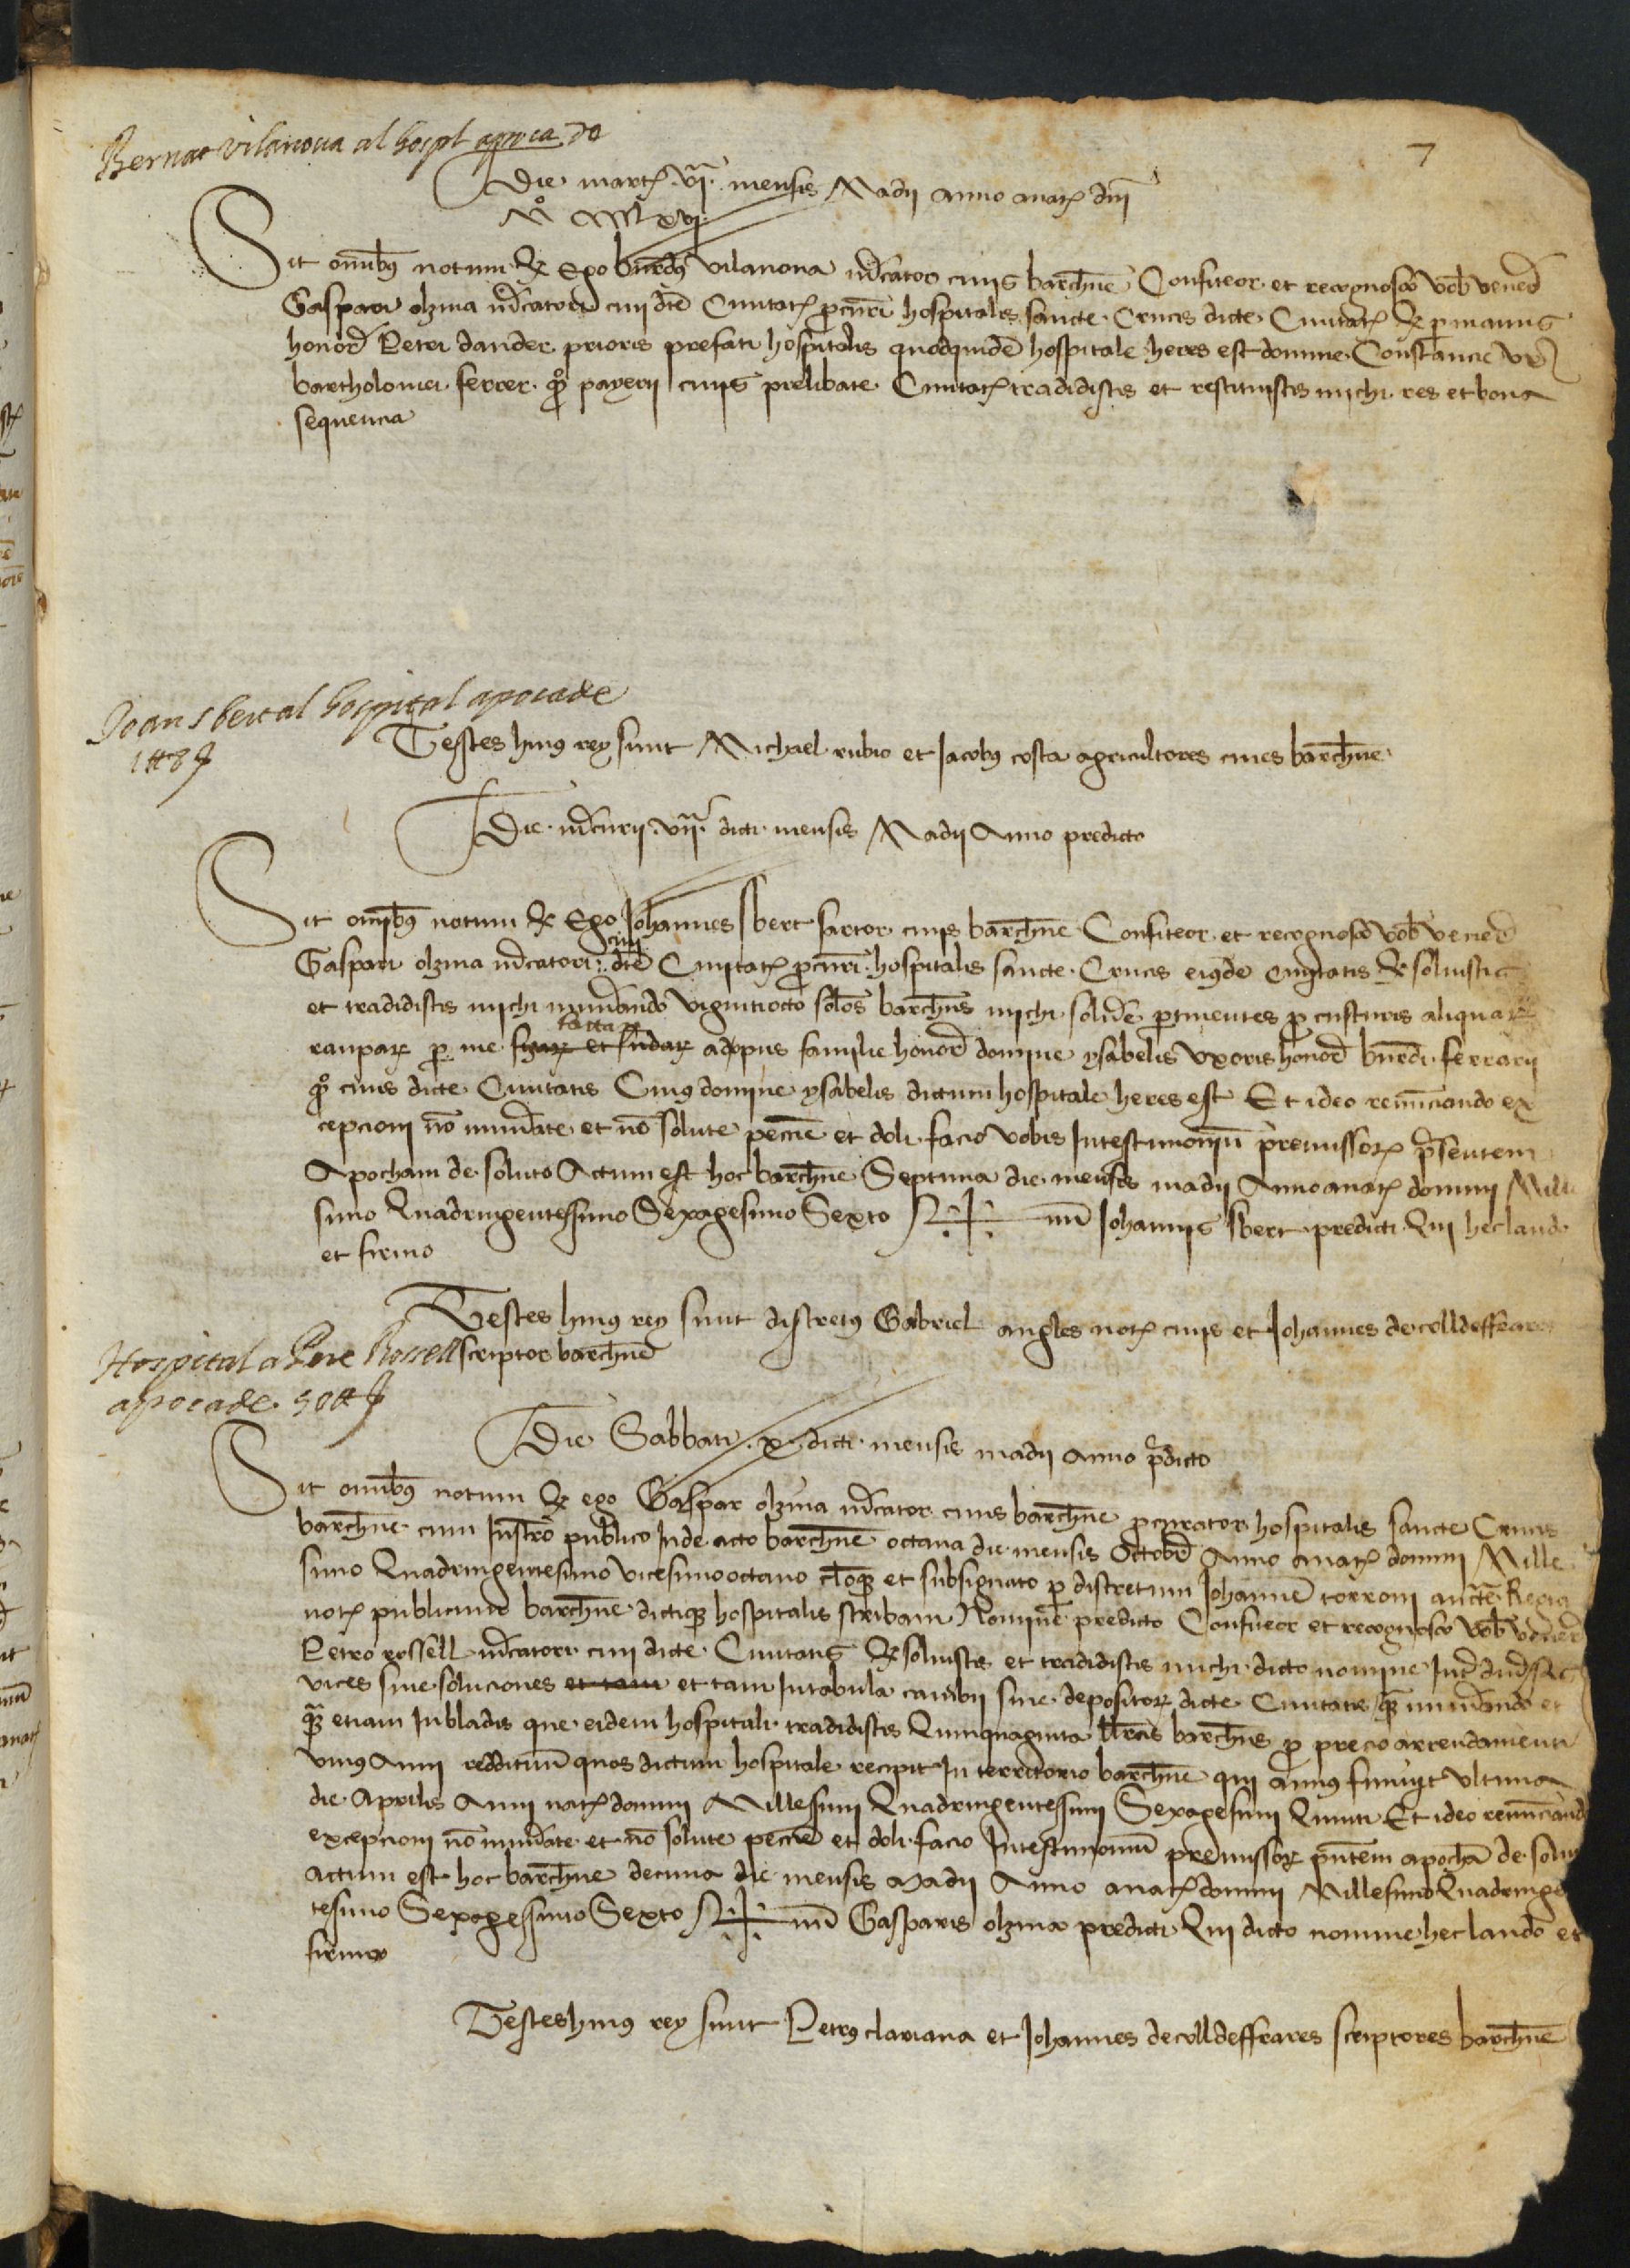 7
Bernat vilanova al hospl apoca de
Die martꝭ .vi. mensis Madii anno anatꝭ dni
Mº CCCC lxvi
Sit omībꝫ notum qꝫ Ego bnrdꝰ vilanova mcator civis barchne Confiteor et recognosco vob vened
Gaspari olzina mcatori civi dte Civitatꝭ procuri hospitalis sancte Crucis dicte Civitatꝭ qꝫ p manus
honord Petri dander prioris prefati hospitalis quodquidē hospitale heres est domine Constancie vxꝭ
bartholomei ferrer qº payerii civis prelibate Civitatꝭ tradidistis et restituistis michi res et bona
sequencia
Joan sbert al hospital apoca de
1 ₶ 8 ſ
Testes huiꝰ rey sunt Michael rubio et Jacobꝰ costa agricultores cives barchne
Die mcurii .vii. dicti mensis Madii Anno predicto
Sit omībꝫ notum qꝫ Ego Johannes sbert sartor civis barchne Confiteor et recognosco vob vened
Gaspari olzina mcatori civi dte Civitatꝭ procuri hospitalis sancte Crucis eiusde civitatis qꝫ solvistis
et tradidistis michi numerando vigintiocto solos barchns michi solide ptinentes pro custuris aliquaꝝ
raupaꝝ p me factaꝝ adopus familie honord domine ysabelis vxoris honord bnrdi ferrarii
qº civis dicte Civitatis Cuiꝰ domine ysabelis dictum hospitale heres est Et ideo renunciando ex
cepcioni nō numerate et nō solute peccnie et doli facio vobis Intestimoniū premissorꝝ presentem
Apocham de soluto Actum est hoc barchne Septima die mensis madii Anno anatꝭ domini Mille
simo Quadringentesimo Sexagesimo Sexto S✝num Johannis sbert predicti Qui hec laudo
et firmo
Testes huiꝰ rey sunt discretꝰ Gabriel angles notꝭ civis et Johannes de colldeffrares
scriptor barchne
Hospital a Pere Rossell
apoca de 50 ₶
Die Sabbati .x. dicti mensis madii anno pdicto
Sit omībꝫ notum qꝫ ego Gaspar olzina mcator civis barchne procurator hospitalis sancte Crucis
barchne cum Instro publico Inde acto barchne octava die mensis Octobr Anno anatꝭ domini Mille
simo Quadringentesimo vicesimooctavo cloqꝫ et subsignato p discretum Johannē torroni aucte Regia
notꝭ publicum barchne dictiqꝫ hospitalis scribam Nomine predicto Confiteor et recognosco vob vened
Petro rossell mcatori civi dicte Civitatis qꝫ solvistis et tradidistis michi dicto nomine
vices sive soluciones et tam et tam Intabula cambii sive depositoꝝ dicte Civitatis qꝫ numerando et
qꝫ etiam Inbladis que eidem hospitali tradidistis Quinquaginta libras barchns pro precio arrendamenti
uniꝰ Anni reddituū quos dictum hospitale recipit In territorio barchne qui annꝰ finivit ultima
die Aprilis Anni natꝭ domini Millesimi Quadringentesimi Sexagesimi Quinti Et ideo renunciando
excepcioni nō numerate et nō solute peccnie et doli facio Intestimoniū premissorꝝ pntem apochā de solu
Actum est hoc barchne decima die mensis Madii Anno anatꝭ domini Millesimo Quadringe
tesimo Sexagessimo Sexto S✝num Gasparis olzina predicti Qui dicto nomine hec laudo et
firmo
Testes huiꝰ rey sunt Petrꝰ clariana et Johannes de colldeffrares scriptores barchne